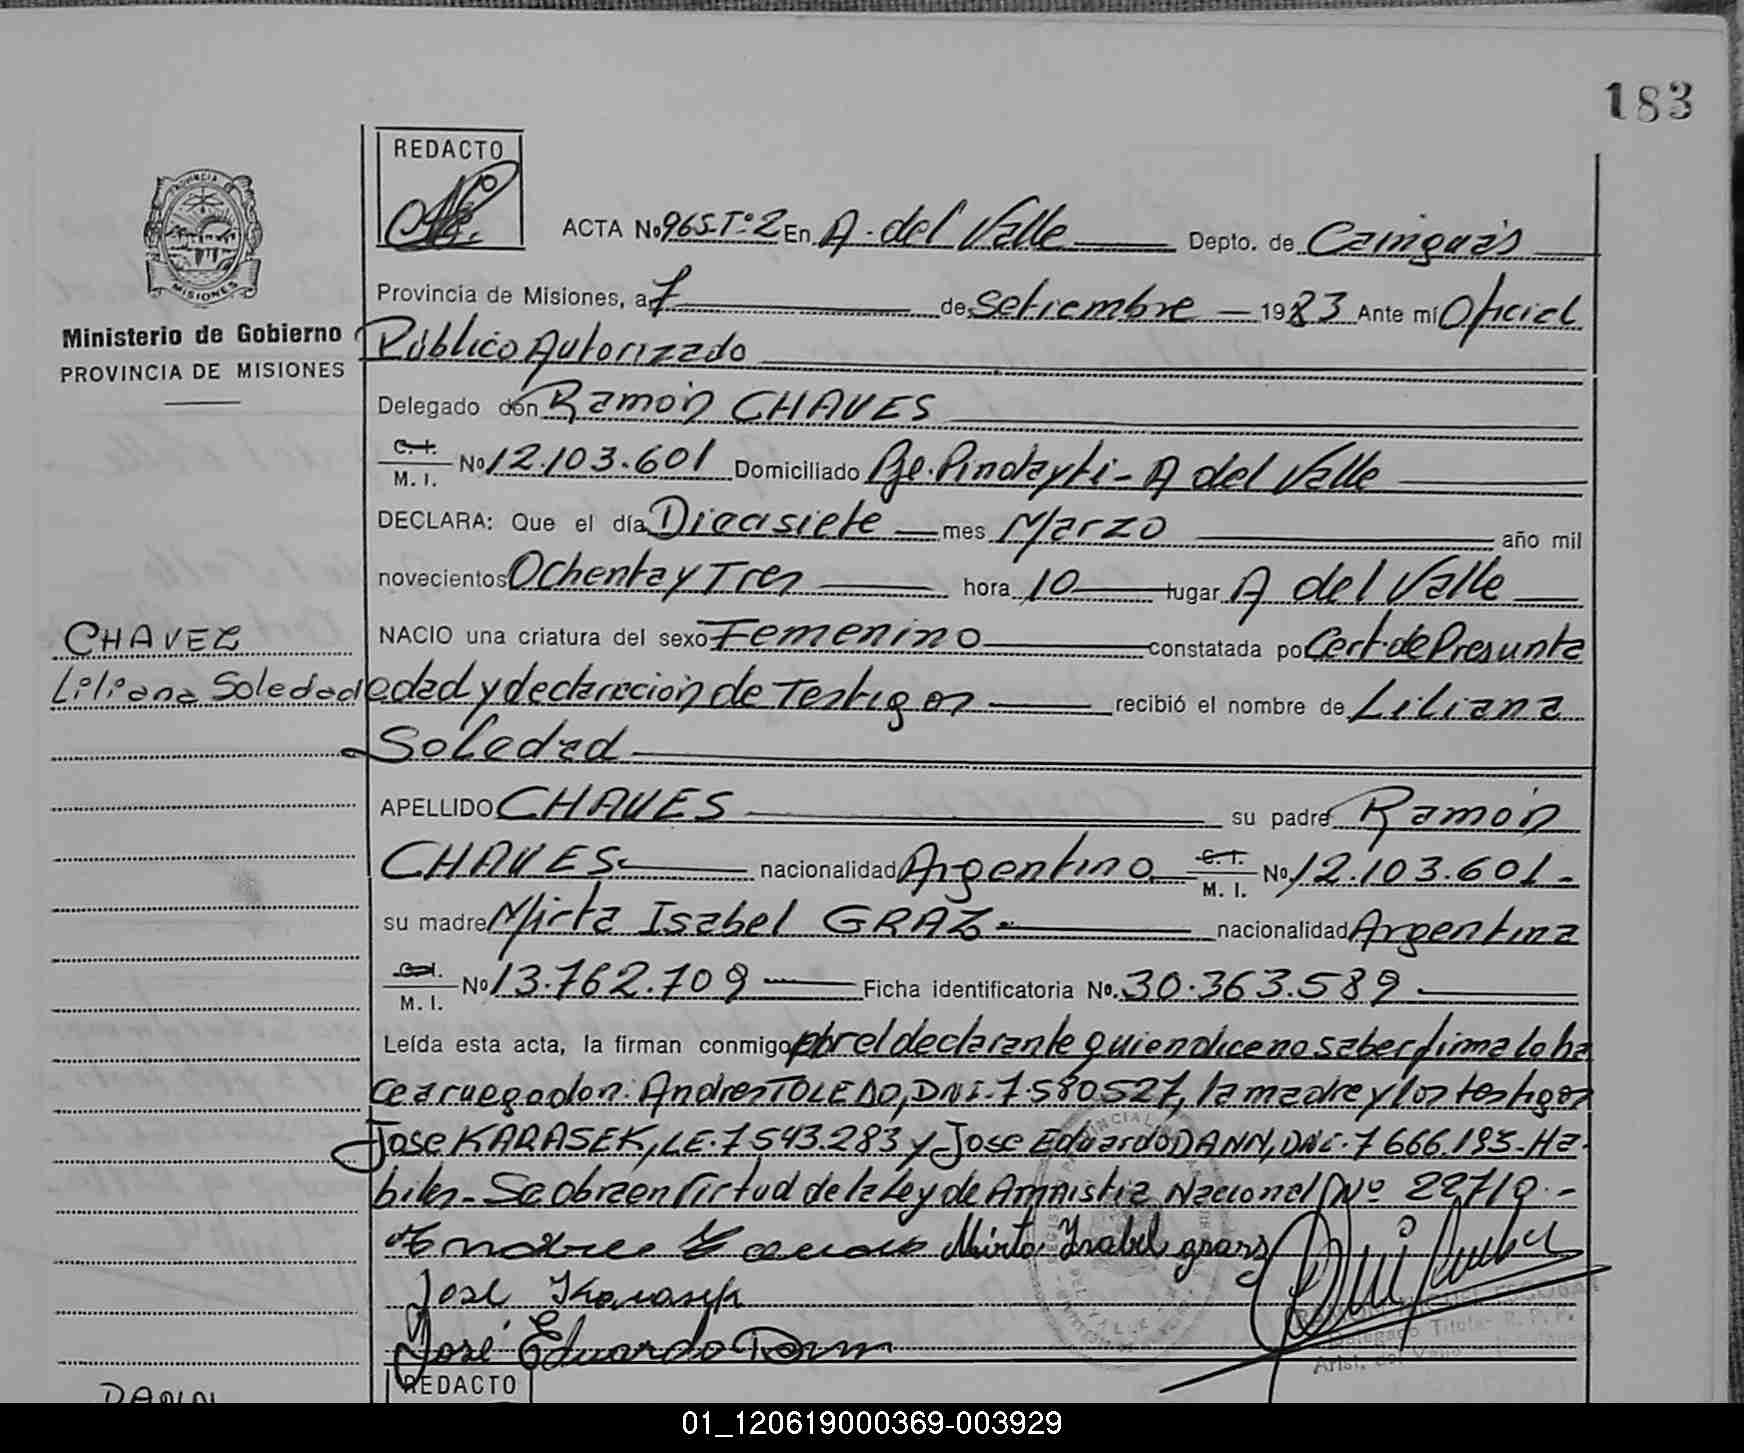 183
REDACTO
PROVINCIA DE
MISIONES
Ministerio de Gobierno
PROVINCIA DE MISIONES
ACTA No 965.Tº2 En A. del Valle Depto. de Cainguás
Provincia de Misiones, a 7 de Setiembre 1983 Ante mí Oficial
Público Autorizado
Delegado don Ramón CHAVES
C. I. M. I. No 12.103.601 Domiciliado Pje. Pindayti - A del Valle
DECLARA: Que el día Diecisiete mes Marzo año mil
novecientos Ochenta y Tres hora 10 lugar A del Valle
CHAVES
NACIO una criatura del sexo Femenino constatada po Cert. de Presunta
Liliana Soledad
edad y declaración de Testigos recibió el nombre de Liliana
Soledad
APELLIDO CHAVES su padre Ramón
CHAVES nacionalidad Argentino C. I. M. I. No 12.103.601-
su madre Mirta Isabel GRAZ nacionalidad Argentina
C. I. M. I. No 13.762.709 Ficha identificatoria No. 30.363.589
Leída esta acta, la firman conmigo por el declarante quien dice no saber firma lo ha
ce a ruego don: Andres TOLEDO, DNI. 7580527, la madre y los testigos
Jose KARASEK, LE. 7543.283 y Jose Eduardo DANN, DNI. 7666.193 - Ha-
biles - Se obra en Virtud de la Ley de Amnistia Nacional Nº 22710.-
Mirta Isabel graz
José Karasek
José Eduardo Dann
Delegado Titular R. P. P.
Arist. del Valle
REDACTO
DANN
01_120619000369-003929